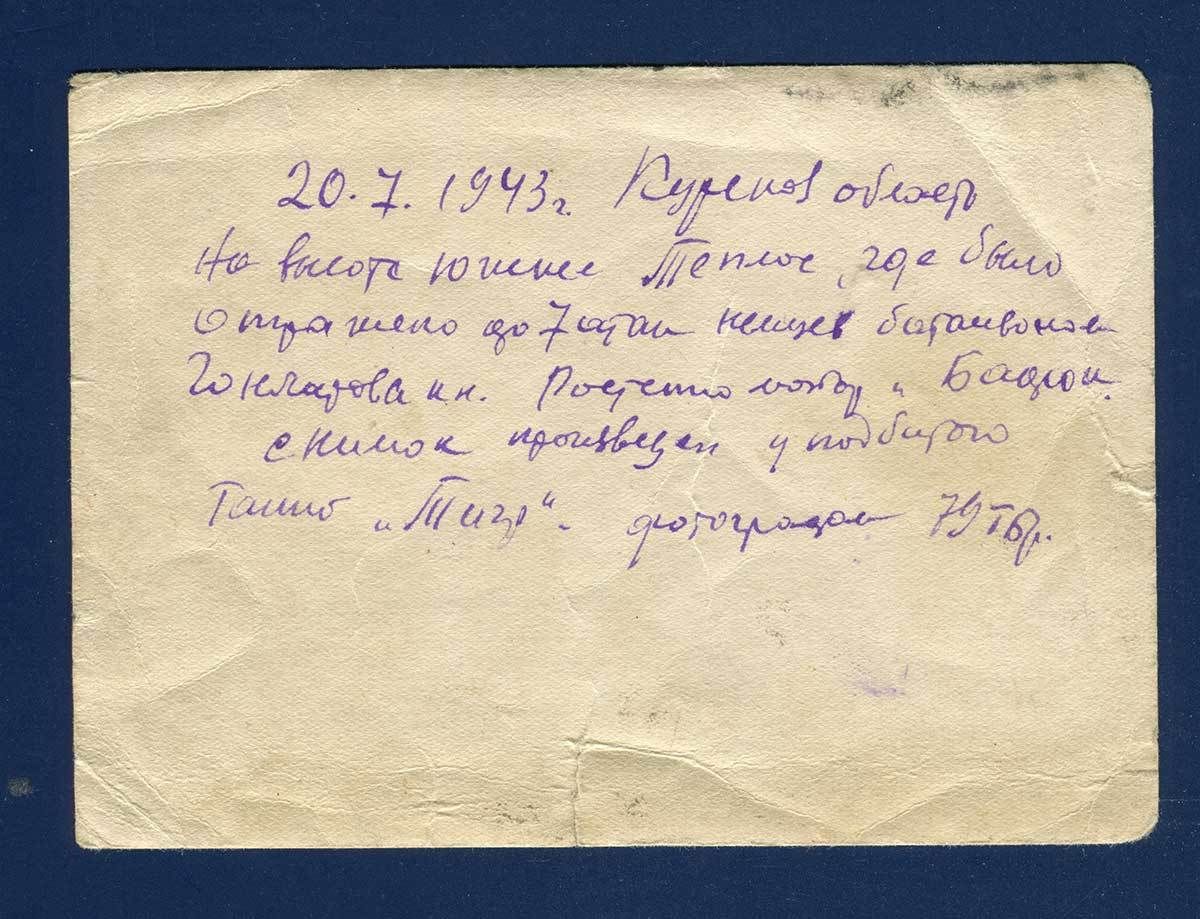 20.7.1943г. Курсков область
На высоте южнее Теплое, где было
отражено до 7 атак немцев батальоном
снимок произведен у подбитого
танка „Тигр“. фотографом 79 тбр.